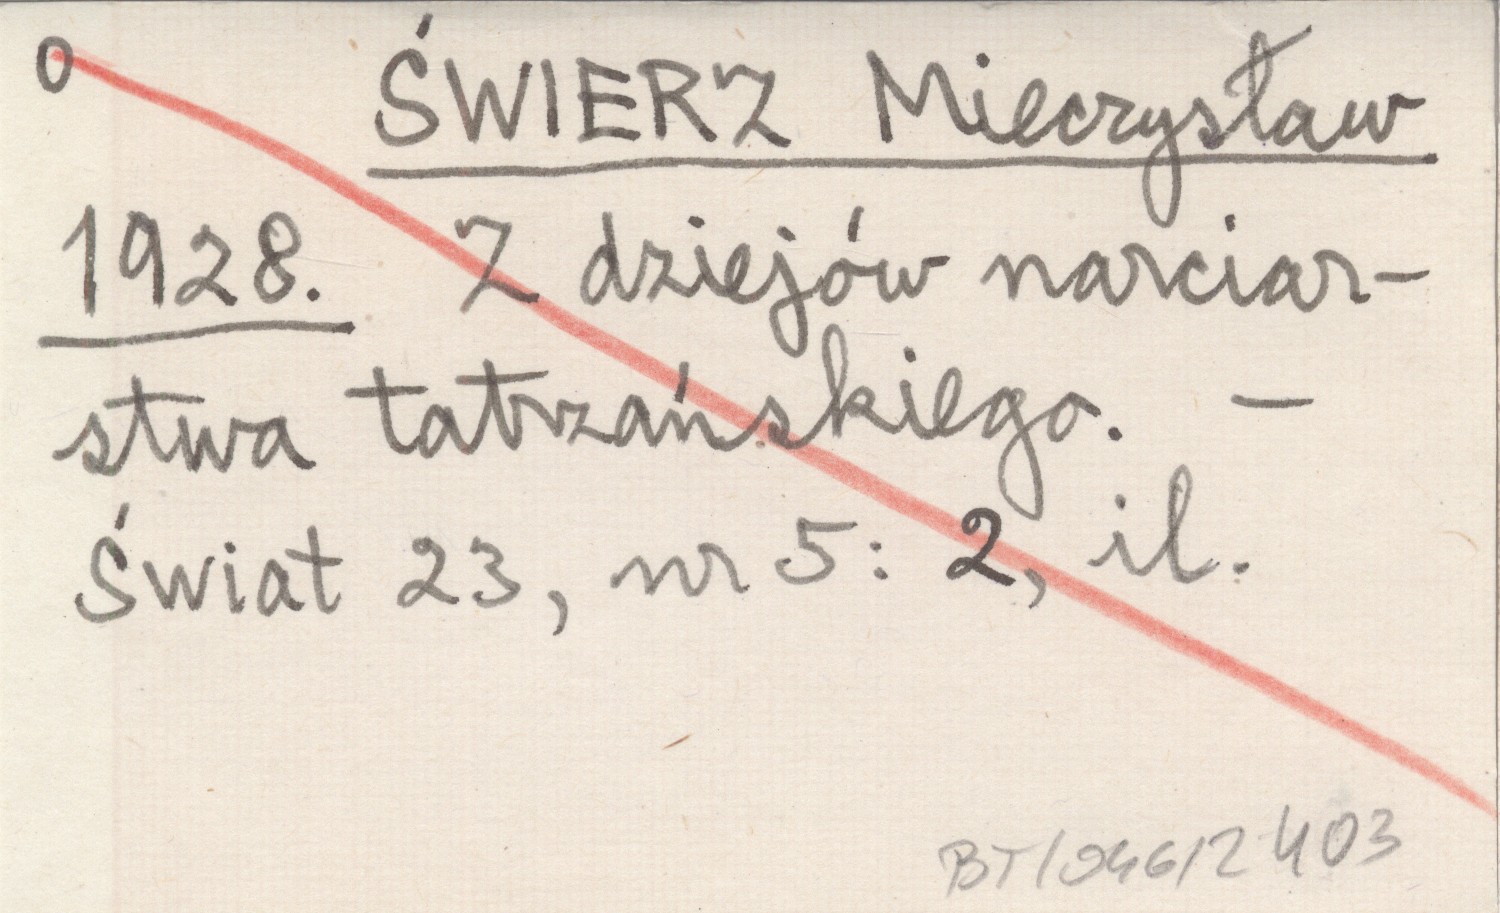 0 ŚWIERZ Mieczysław
1928. Z dziejów narciar-
stwa tatrzańskiego. –
Świat 23, nr 5: 2, il.
403